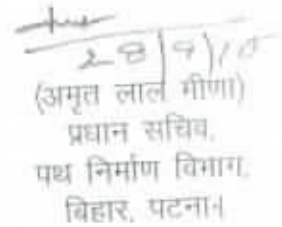 28/9/15
(अमृत लाल मीणा)
प्रधान सचिव,
पथ निर्माण विभाग,
बिहार, पटना।